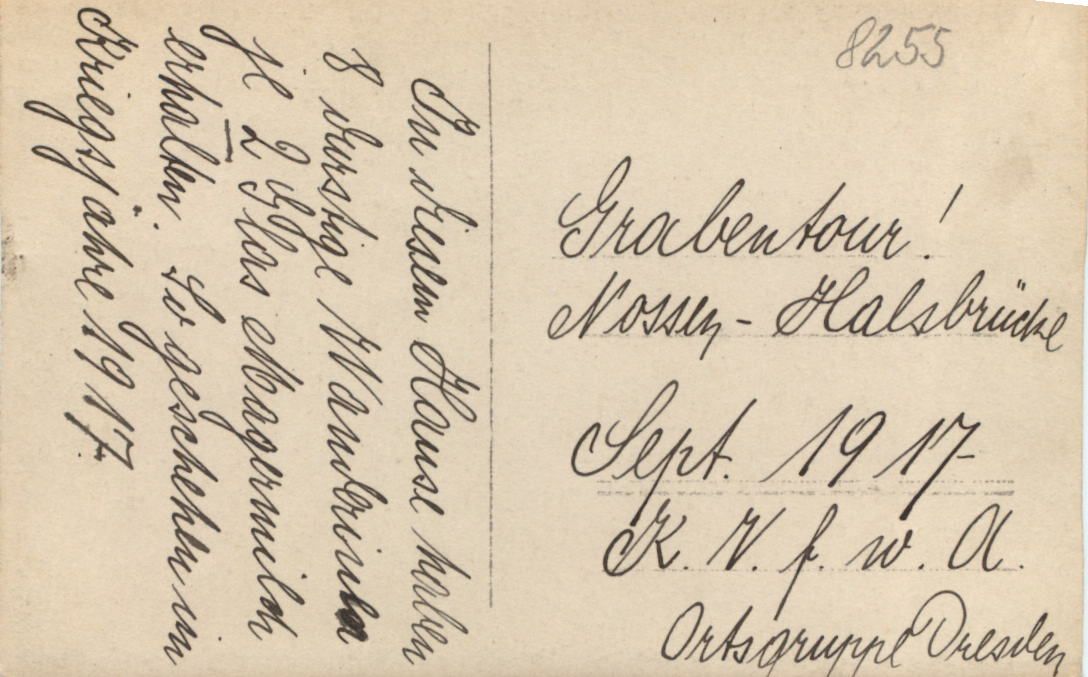 In diesem Hause haben
8 durstige Wandrinla
je 2 Glas Magermilch
erhalten. So geschehen im
Kriegsjahre 1917.
8255
Grabentour!
Nossen - Halsbrücke
Sept. 1917
K. V. f. w. A.
Ortsgruppe Dresden